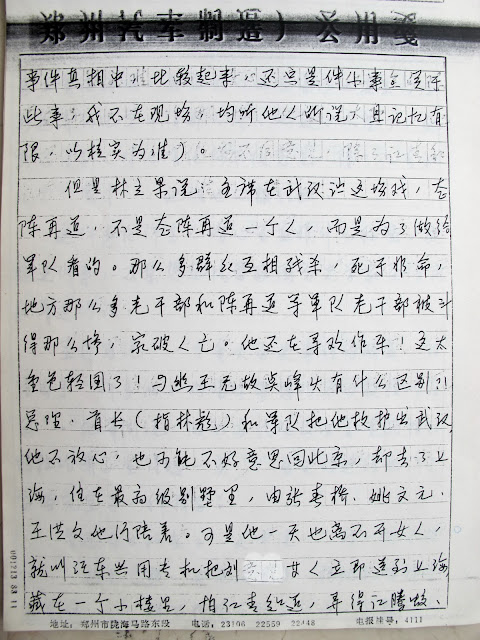 郑州汽车制造厂公用笺
事件真相中 比较起来,还只是件小事。关于
些事,我不在现场,均听他人所说,且记忆有
限,以核实为准)。
但是林立果说:主席在武汉 这场戏,
陈再道,不是 陈再道一个人,而是为了做给
军队看的。那么多群众互相残杀,死于非命,
地方那么多老干部和陈再道等军队老干部被斗
得那么惨,家破人亡。他还在寻欢作乐!这太
重色轻国了!与幽王无故 烽火有什么区别?!
总理、首长(指林彪)和军队把他救护出武汉,
他不放心,也可能不好意思回北京,却去了上
海,住在最高级别墅里,由张春桥、姚文元、
王洪文他们陪着。可是他一天也离不开女人,
就叫汪东兴用专机把刘 女人立即送到上海,
藏在一个小楼里,怕江青知道,弄得江
地址:郑州市陇海马路东段 电话:23106 22559 22248 电报挂号:4111